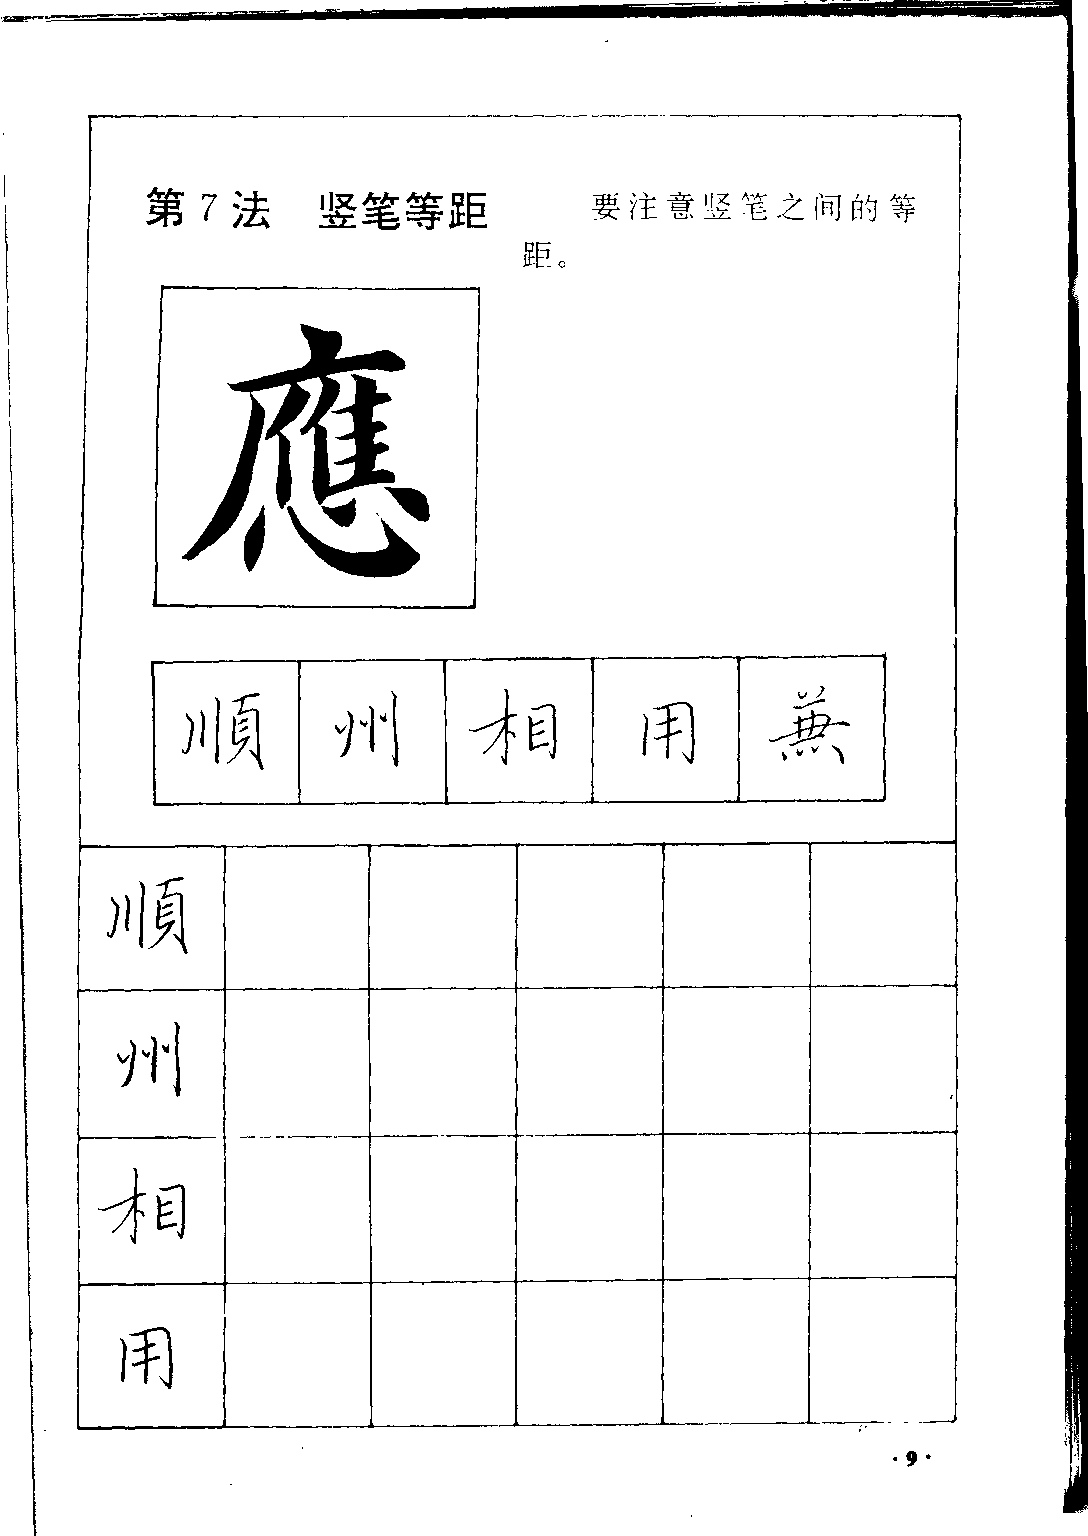 第7法 竖笔等距
要注意竖笔之间的等
距。
應
順 州 相 用 無
順
州
相
用
·9·